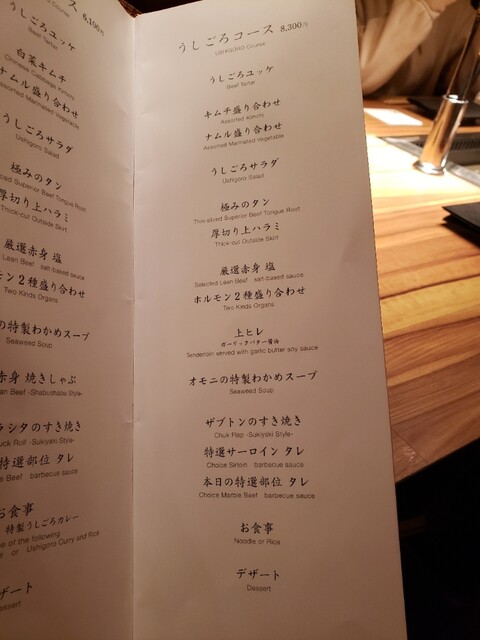 ス 6,100円
うしごろユッケ
Beef Tartar
白菜キムチ
Chinese Cabbage Kimchi
ナムル盛り合わせ
Assorted Marinated Vegetable
うしごろサラダ
Ushigoro Salad
極みのタン
Superior Beef Tongue Root
厚切り上ハラミ
Thick-cut Outside Skirt
厳選赤身 塩
Lean Beef salt-based sauce
モン2種盛り合わせ
Two Kinds Organs
の特製わかめスープ
Seaweed Soup
赤身 焼きしゃぶ
Beef -Shabushabu Style-
ラシタのすき焼き
Roll -Sukiyaki Style-
特選部位 タレ
Beef barbecue sauce
お食事
特製うしごろカレー
of the following
or Ushigoro Curry and Rice
デザート
Dessert
うしごろコース 8,300円
USHIGORO Course
うしごろユッケ
Beef Tartar
キムチ盛り合わせ
Assorted Kimchi
ナムル盛り合わせ
Assorted Marinated Vegetable
うしごろサラダ
Ushigoro Salad
極みのタン
Thin-sliced Superior Beef Tongue Root
厚切り上ハラミ
Thick-cut Outside Skirt
厳選赤身 塩
Selected Lean Beef salt-based sauce
ホルモン2種盛り合わせ
Two Kinds Organs
上ヒレ
ガーリックバター醤油
Tenderloin served with garlic butter soy sauce
オモニの特製わかめスープ
Seaweed Soup
ザブトンのすき焼き
Chuk Flap -Sukiyaki Style-
特選サーロイン タレ
Choice Sirloin barbecue sauce
本日の特選部位 タレ
Choice Marble Beef barbecue sauce
お食事
Noodle or Rice
デザート
Dessert